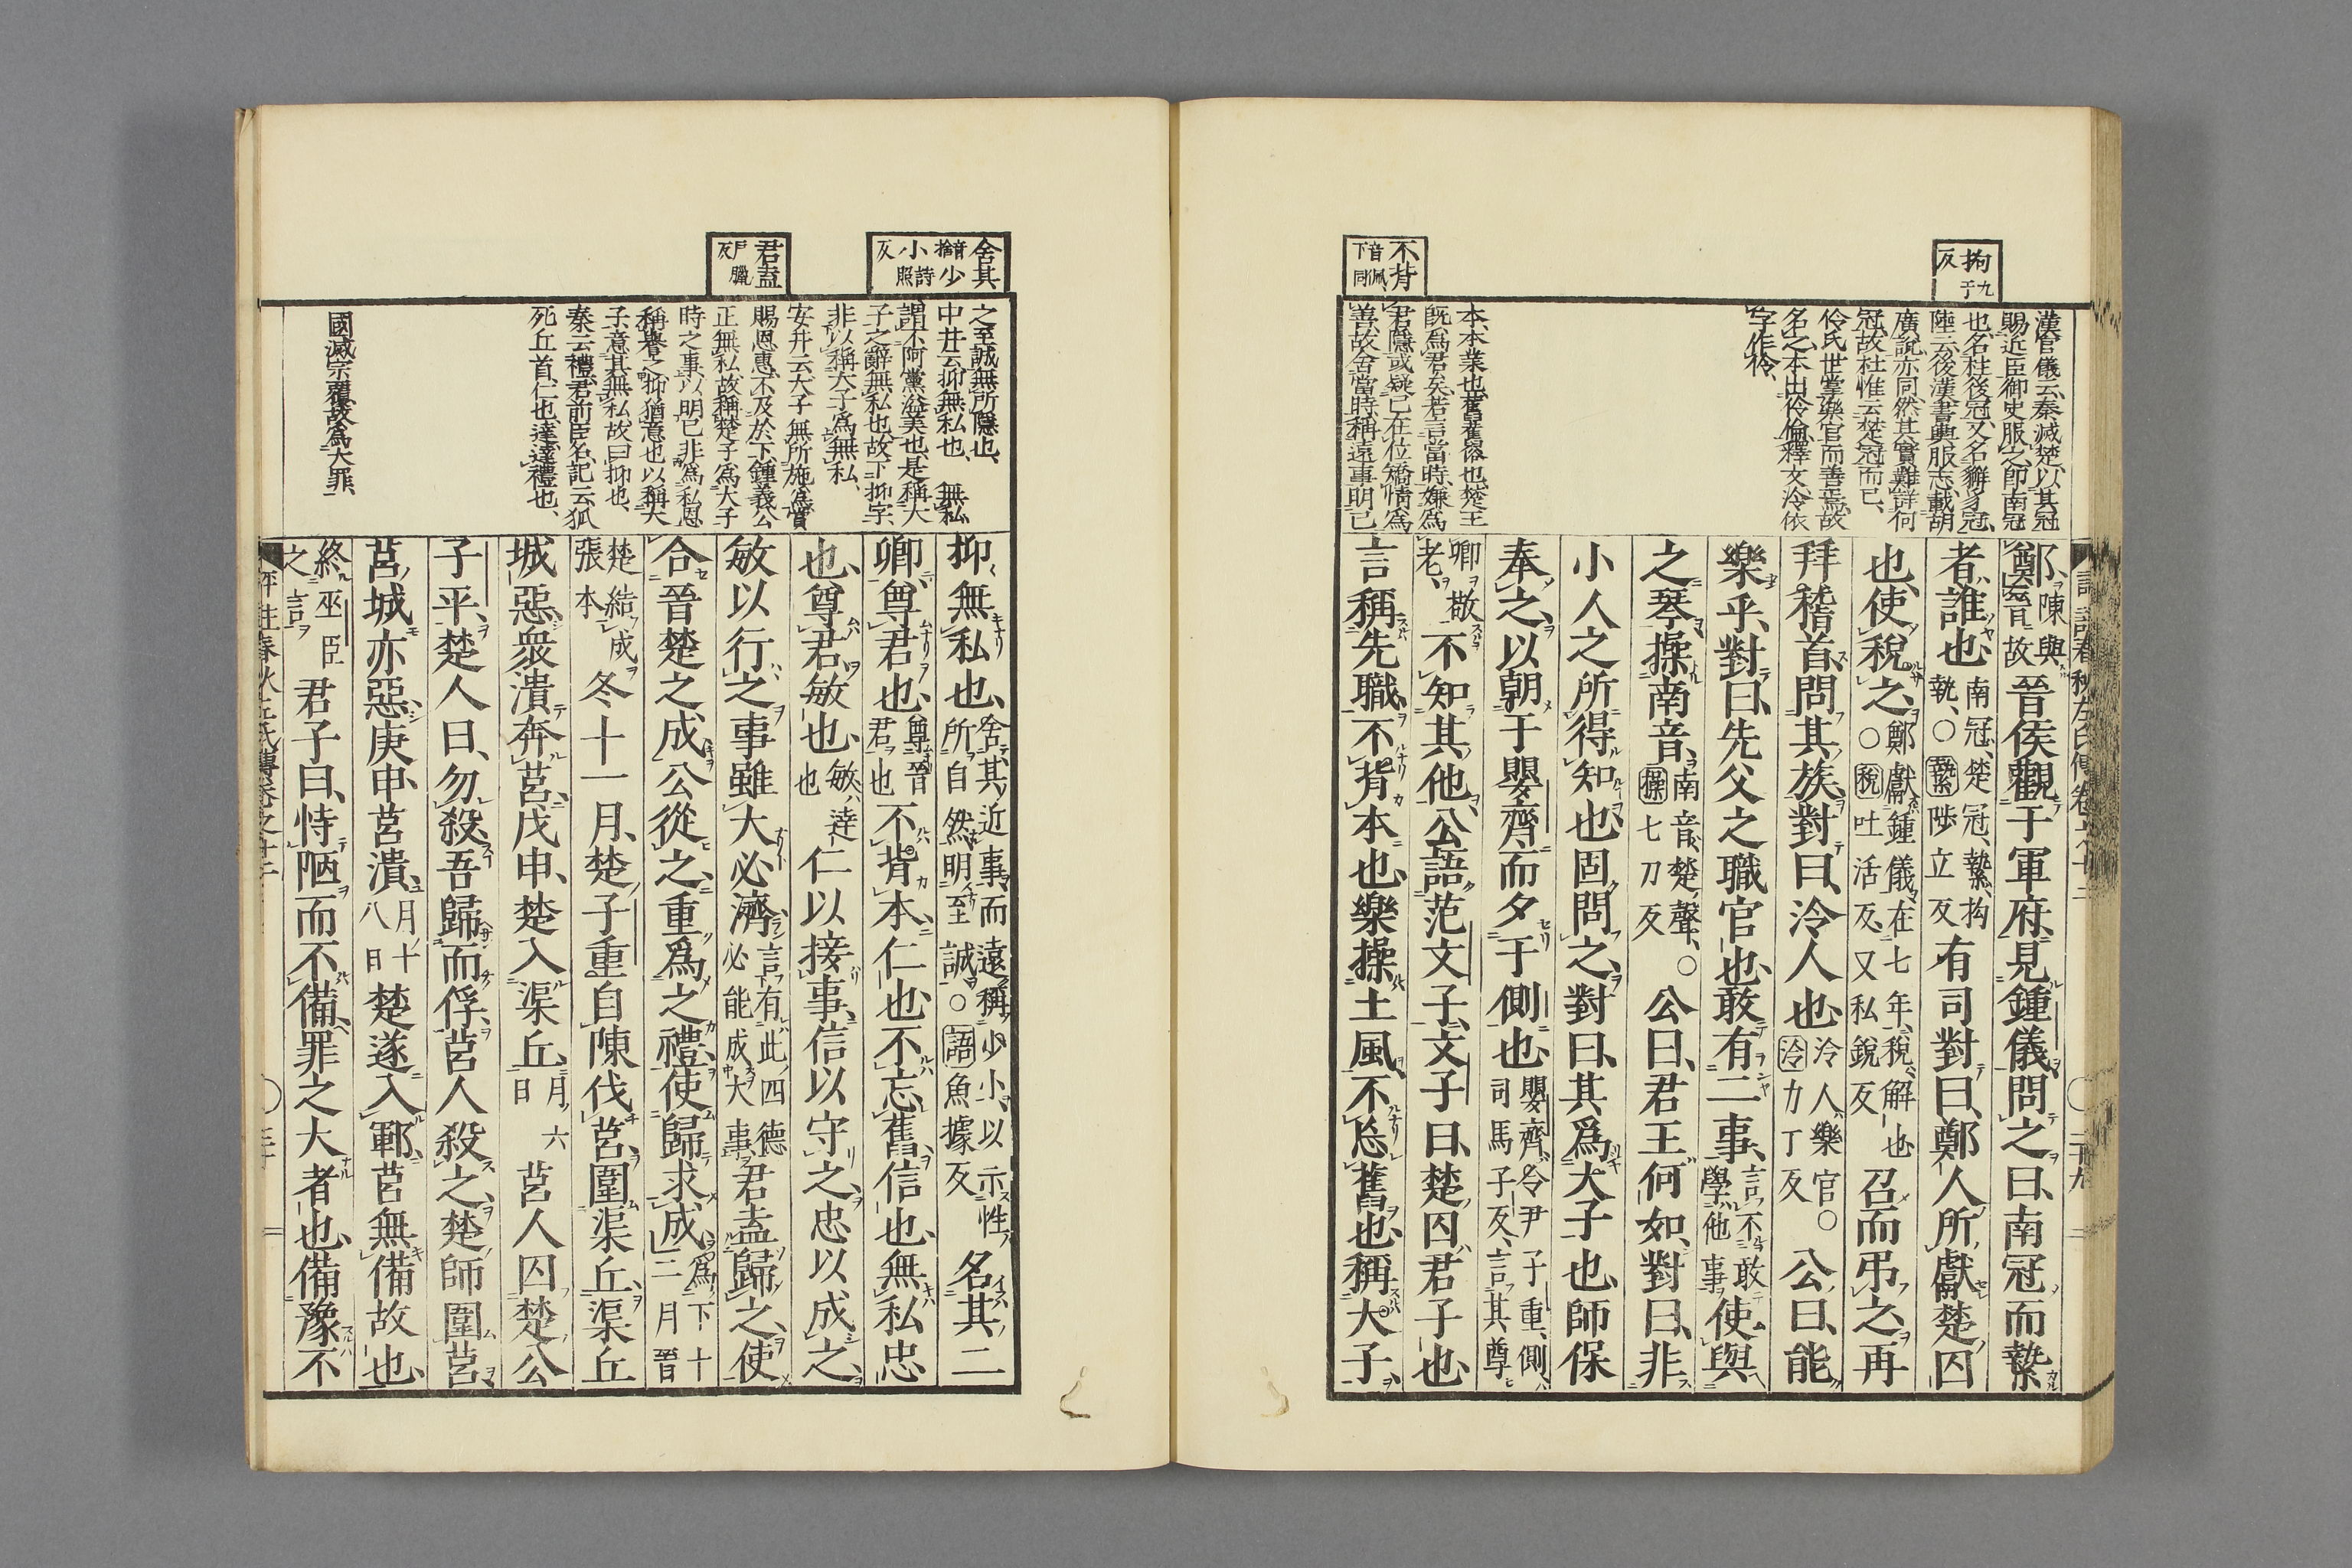 拘九于反
不背音佩下同
漢官儀云、秦滅楚、以其冠
賜近臣御史服之、即南冠
也、名柱後冠、又名獬豸冠、
陸云、後漢書輿服志、載胡
廣説亦同、然其實難詳何
冠、故杜惟云楚冠而已、
伶氏世掌樂官而善焉、故
名之、本出伶倫、釋文、泠依
字作伶、
本、本業也、舊、舊僚也、楚王
既爲君矣、若言當時、嫌爲
君隱、或疑己在位、矯情爲
善、故舍當時、稱遠事、明己
鄭、陳與故 晉侯觀于軍府、見鍾儀、問之曰、南冠而縶
者、誰也、南冠、楚冠、縶、拘執、○縶陟立反 有司對曰、鄭人所獻楚囚
也、使稅之、鄭獻鍾儀在七年、稅、解也○稅吐活反、又私銳反 召而弔之、再
拜稽首、問其族、對曰、泠人也、泠人、樂官○泠力丁反 公曰、能
樂乎、對曰、先父之職官也、敢有二事、言不敢學他事 使與
之琴、操南音、南音、楚聲、○操七刀反 公曰、君王何如、對曰、非
小人之所得知也、固問之、對曰、其爲大子也、師保
奉之、以朝于嬰齊、而夕于側也、嬰齊、令尹子重、側、司馬子反、言其尊
卿敬老、不知其他、公語范文子、文子曰、楚囚君子也
言稱先職、不背本也、樂操土風、不忘舊也、稱大子、
舍其音捨少詩照反小
君盍戶臘反
之至誠無所隱也、
中井云、抑無私也、無私
謂不阿黨溢美也、是稱大
子之辭無私也、故下抑字、
非以稱大子爲無私、
安井云、大子無所施爲賞
賜恩惠、不及於下、鍾義公
正無私、故稱楚子爲大子
時之事、以明已非爲私恩
稱譽之、抑猶意也、以稱大
子、意其無私、故曰抑也、
秦云、禮、君前臣名、記云、狐
死丘首、仁也、達、達禮也、
國滅宗覆、故爲大罪、
抑無私也、舍其近事、而遠稱少小、以示性所自然、明至誠○語魚據反 名其二
卿、尊君也、尊晉君也 不背本、仁也、不忘舊、信也、無私、忠
也、尊君、敏也、敏、達也 仁以接事、信以守之、忠以成之、
敏以行之、事雖大必濟、言有此四德必能成大事 君盍歸之、使
合晉楚之成、公從之、重爲之禮、使歸求成、爲下十二月晉
楚結成張本 冬十一月、楚子重自陳伐莒、圍渠丘、渠丘
城惡、衆潰奔莒、戊申、楚入渠丘、月六日 莒人囚楚公
子平、楚人曰、勿殺、吾歸而俘、莒人殺之、楚師圍莒、
莒城亦惡、庚申、莒潰、月十八日 楚遂入鄆、莒無備故也、
終巫臣之言 君子曰、恃陋而不備、罪之大者也、備豫不